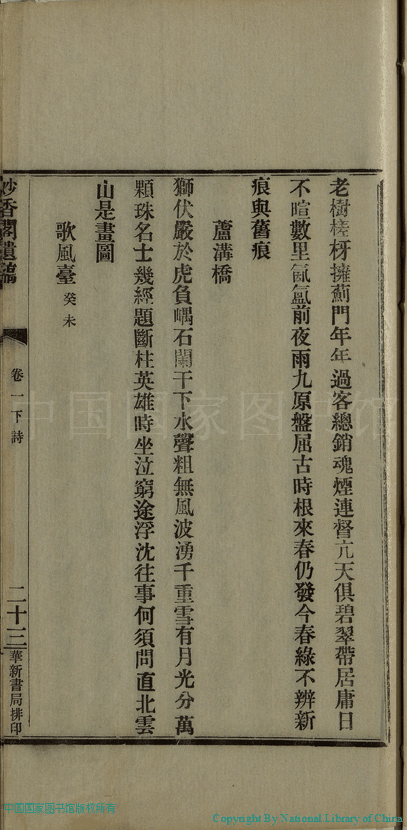 老樹槎枒擁薊門年年過客總銷魂煙連督亢天俱碧翠帶居庸日
不暄數里氤氳前夜雨九原盤屈古時根來春仍發今春綠不辨新
痕與舊痕
蘆溝橋
獅伏嚴於虎負嵎石闌干下水聲粗無風波湧千重雪有月光分萬
顆珠名士幾經題斷柱英雄時坐泣窮途浮沈往事何須問直北雲
山是畫圖
歌風臺癸未
妙香閣遺稿
卷一下詩
二十三
華新書局排印
中国国家图书馆
中国国家图书馆版权所有
Copyright By National Library of China